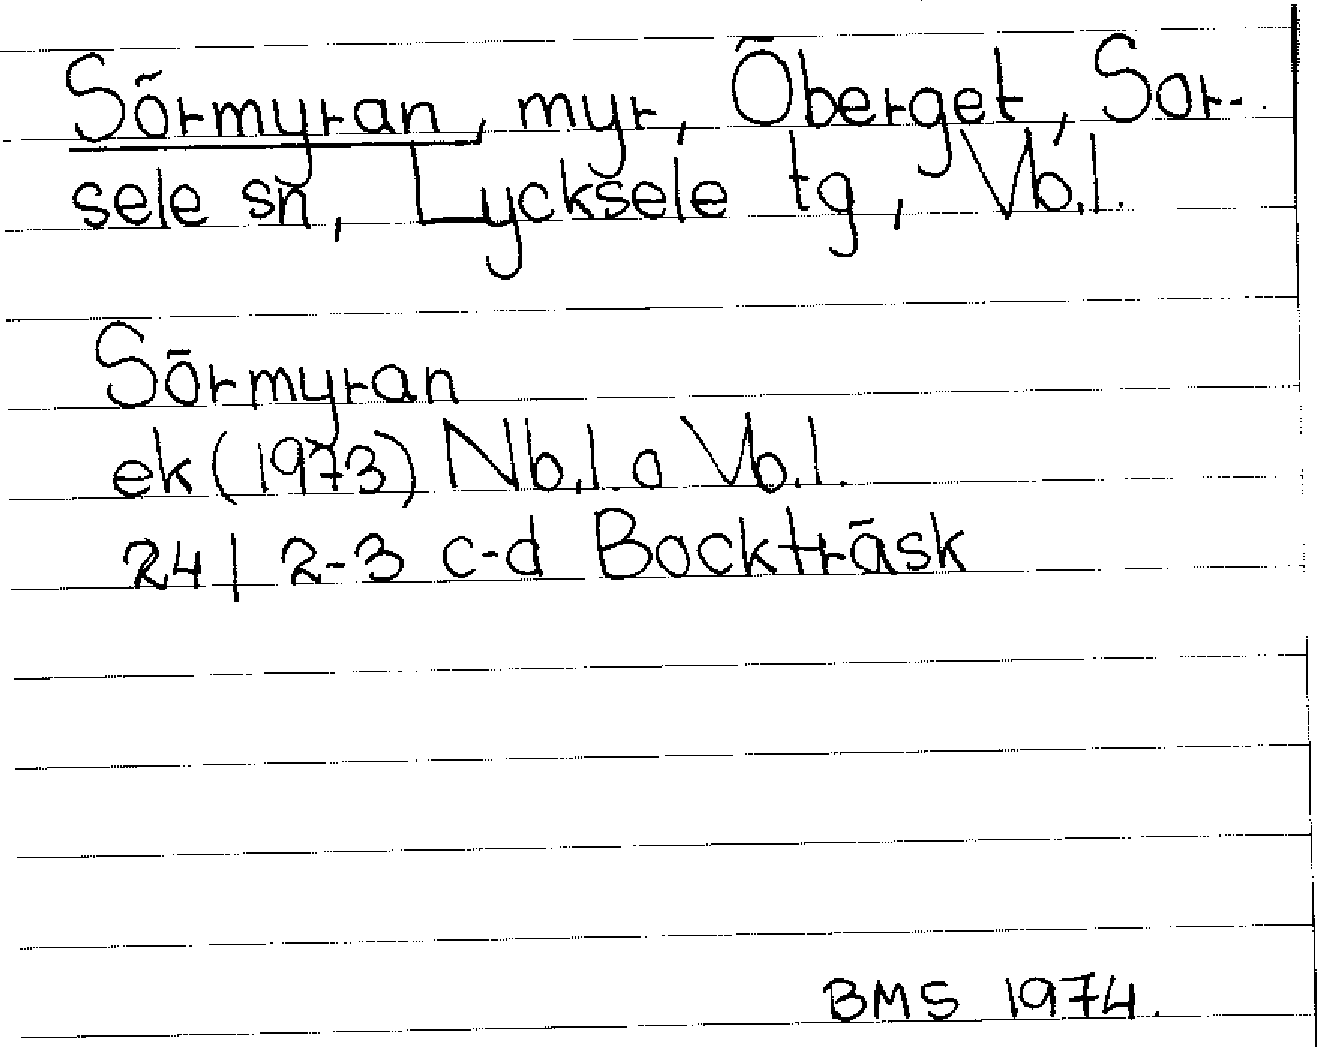 Sörmyran, myr, Öberget, Sor-
sele sn, Lycksele tg, Vb.l.
Sörmyran
ek (1973) Nb.l. o Vb.l.
24 | 2-3 c-d Bockträsk
BMS 1974.